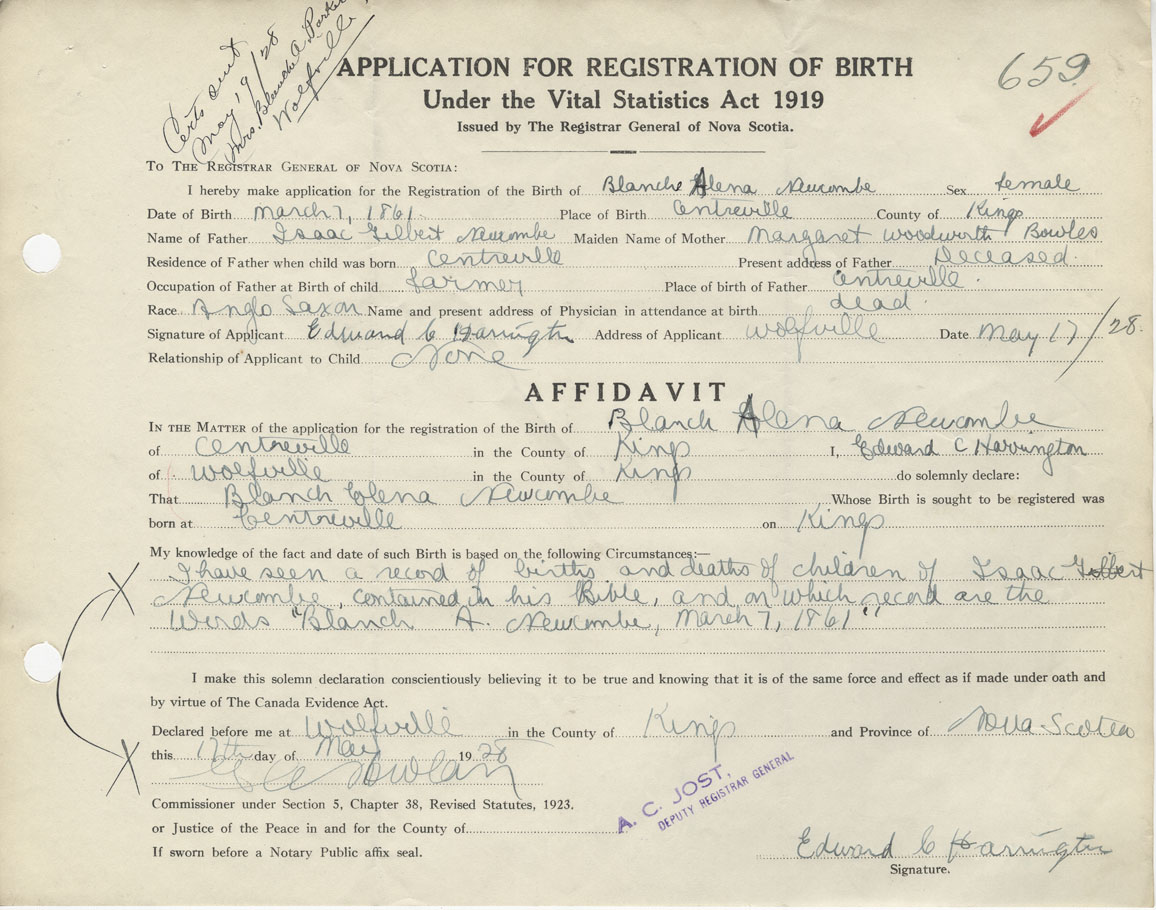 Certs sent
May 19/28
Mrs. Blanche A. Parker
Wolfville
659
APPLICATION FOR REGISTRATION OF BIRTH
Under the Vital Statistics Act 1919
Issued by The Registrar General of Nova Scotia.
To The Registrar General of Nova Scotia:
I hereby make application for the Registration of the Birth of Blanche Alena Newcombe Sex female
Date of Birth March 7, 1861. Place of Birth Centreville County of Kings
Name of Father Isaac Gilbert Newcombe Maiden Name of Mother Margaret Woodworth Bowles
Residence of Father when child was born Centreville Present address of Father Deceased.
Occupation of Father at Birth of child farmer Place of birth of Father Centreville.
Race Anglo Saxon Name and present address of Physician in attendance at birth dead.
Signature of Applicant Edward C Harrington Address of Applicant Wolfville Date May 17/28.
Relationship of Applicant to Child None
AFFIDAVIT
In the Matter of the application for the registration of the Birth of Blanch Alena Newcombe
of Centreville in the County of Kings I, Edward C Harrington
of Wolfville in the County of Kings do solemnly declare:
That Blanch Elena Newcombe Whose Birth is sought to be registered was
born at Centreville on Kings
My knowledge of the fact and date of such Birth is based on the following Circumstances:—
I have seen a record of births and deaths of children of Isaac Gilbert
Newcombe, contained in his Bible, and on which record are the
Words "Blanch A. Newcombe, March 7, 1861"
I make this solemn declaration conscientiously believing it to be true and knowing that it is of the same force and effect as if made under oath and
by virtue of The Canada Evidence Act.
Declared before me at Wolfville in the County of Kings and Province of Nova Scotia
this 17th day of May 1928
Commissioner under Section 5, Chapter 38, Revised Statutes, 1923.
A. C. JOST,
DEPUTY REGISTRAR GENERAL
or Justice of the Peace in and for the County of
If sworn before a Notary Public affix seal.
Edward C Harrington
Signature.